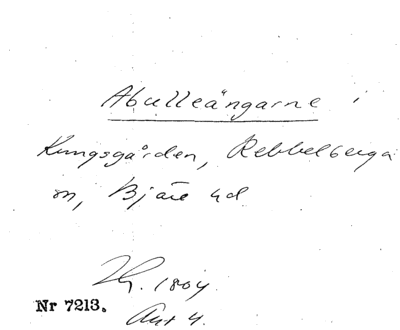 Abulleängarne i
Kungsgården, Rebbelberga
sn, Bjäre hd
1804
Nr 7213.
Akt 4.